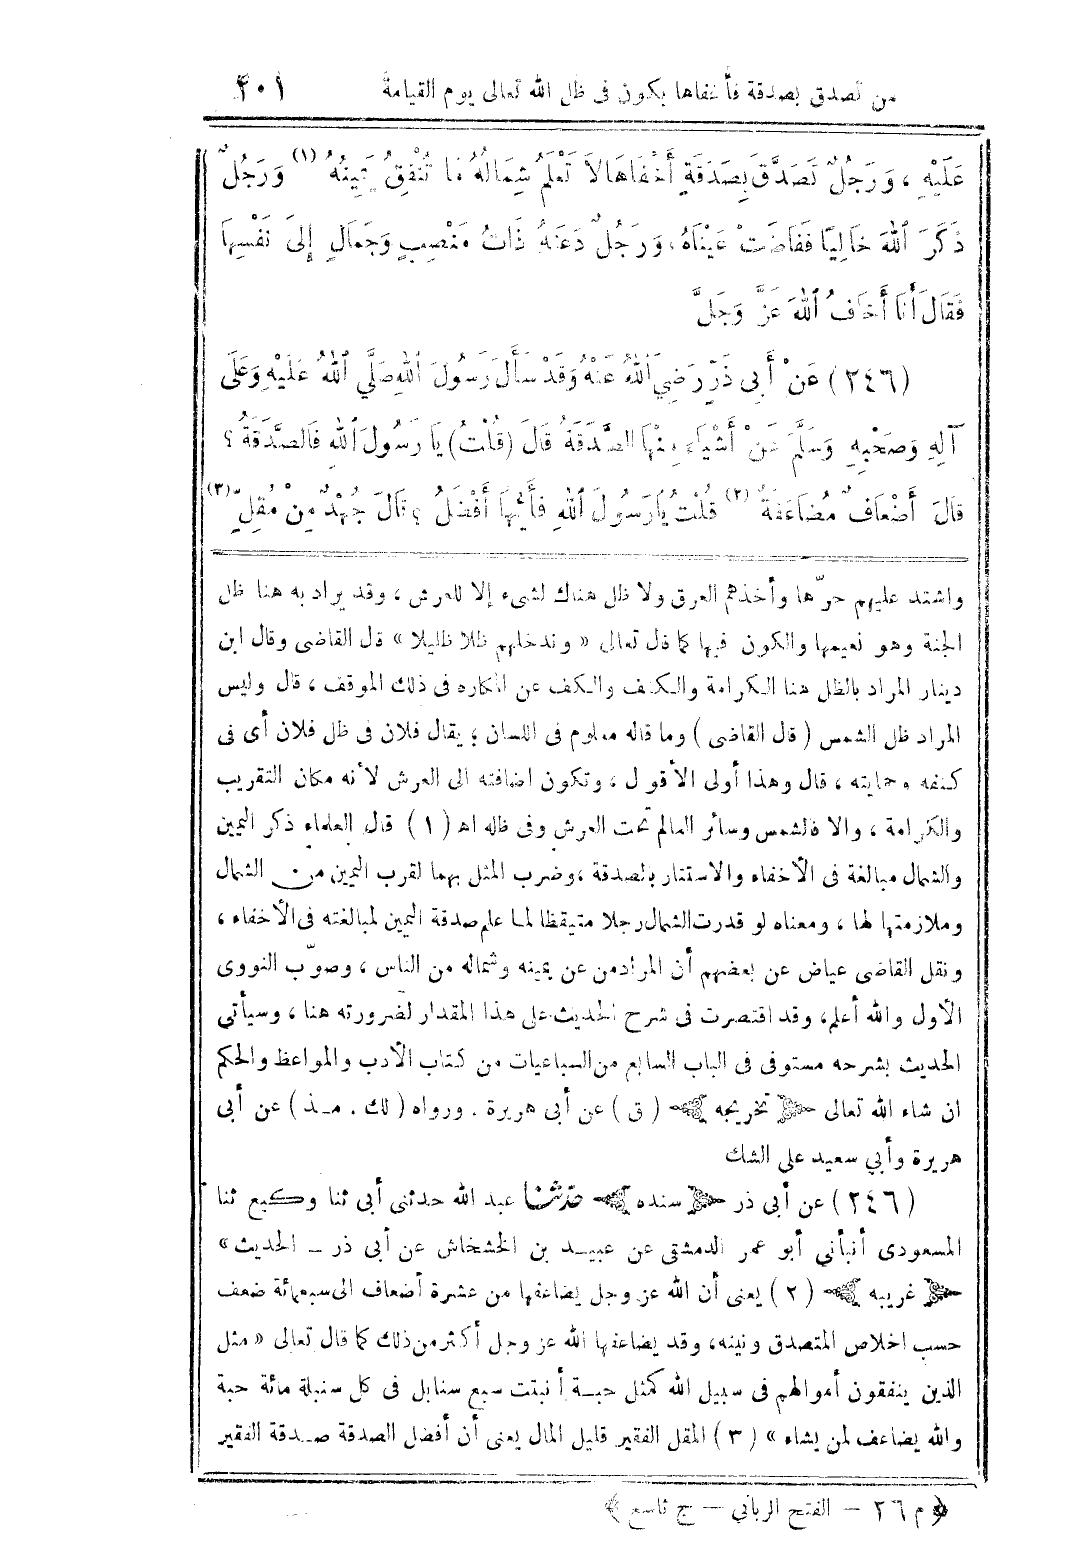 من تصدق بصدقة فأخفاها يكون فى ظل الله تعالى يوم القيامة ٢٠١
عَلَيْهِ ، وَرَجُلٌ تَصَدَّقَ بِصَدَقَةٍ أَخْفَاهَا لاَ تَعْلَمُ شِمَالُهُ مَا تُنْفِقُ يَمِينُهُ (١) وَرَجُلٌ
ذَكَرَ اللهَ خَالِيًا فَفَاضَتْ عَيْنَاهُ، وَرَجُلٌ دَعَتْهُ ذَاتُ مَنْصِبٍ وَجَمَالٍ إِلَى نَفْسِهَا
فَقَالَ أَنَا أَخَافُ اللهَ عَزَّ وَجَلَّ
(٢٤٦) عَنْ أَبِى ذَرٍّ رَضِيَ اللهُ عَنْهُ وَقَدْ سَأَلَ رَسُولَ اللهِ صَلَّي اللهُ عَلَيْهِ وَعَلَى
آلِهِ وَصَحْبِهِ وَسَلَّمَ عَنْ أَشْيَاءَ مِنْهَا الصَّدَقَةُ قَالَ (قُلْتُ) يَا رَسُولَ اللهِ فَالصَّدَقَةُ ؟
قَالَ أَضْعَافٌ مُضَاعَفَةٌ (٢) قُلْتُ يَارَسُولَ اللهِ فَأَيُّهَا أَفْضَلُ ؟ قَالَ جُهْدٌ مِنْ مُقِلٍّ (٣)
واشتد عليهم حرّها وأخذهم العرق ولا ظل هناك لشىء إلا للعرش ، وقد يراد به هنا ظل
الجنة وهو نعيمها والكون فيها كما قال تعالى « وندخلهم ظلا ظليلا » قال القاضى وقال ابن
دينار المراد بالظل هنا الكرامة والكنف والكف عن المكاره فى ذلك الموقف ، قال وليس
المراد ظل الشمس ( قال القاضى ) وما قاله معلوم فى اللسان ؛ يقال فلان فى ظل فلان أى فى
كنفه وحمايته ، قال وهذا أولى الأقوال ، وتكون اضافته الى العرش لأنه مكان التقريب
والكرامة ، والا فالشمس وسائر العالم تحت العرش وفى ظله اه ( ١ ) قال العلماء ذكر اليمين
والشمال مبالغة فى الأخفاء والاستتار بالصدقة ، وضرب المثل بهما لقرب اليمين من الشمال
وملازمتها لها ، ومعناه لو قدرت الشمال رجلا متيقظا لما علم صدقة اليمين لمبالغته فى الأخفاء ،
ونقل القاضى عياض عن بعضهم أن المراد من عن يمينه وشماله من الناس ، وصوّب النووى
الأول والله أعلم، وقد اقتصرت فى شرح الحديث على هذا المقدار لضرورته هنا ، وسيأتى
الحديث بشرحه مستوفى فى الباب السابع من السباعيات من كتاب الأدب والمواعظ والحكم
ان شاء الله تعالى ﴿ تخريجه ﴾ ( ق ) عن أبى هريرة . ورواه ( لك . مذ ) عن أبى
هريرة وأبي سعيد على الشك
(٢٤٦) عن أبى ذر ﴿ سنده ﴾ حدثنا عبد الله حدثنى أبى ثنا وكيع ثنا
المسعودى أنبأني أبو عمر الدمشقى عن عبيد بن الخشخاش عن أبى ذر ـ الحديث »
﴿ غريبه ﴾ ( ٢ ) يعنى أن الله عز وجل يضاعفها من عشرة أضعاف الى سبعمائة ضعف
حسب اخلاص المتصدق ونيته، وقد يضاعفها الله عز وجل أكثر من ذلك كما قال تعالى « مثل
الذين ينفقون أموالهم فى سبيل الله كمثل حبة أنبتت سبع سنابل فى كل سنبلة مائة حبة
والله يضاعف لمن يشاء » ( ٣ ) المقل الفقير قليل المال يعنى أن أفضل الصدقة صدقة الفقير
﴿ م ٢٦ — الفتح الرباني — ج تاسع ﴾